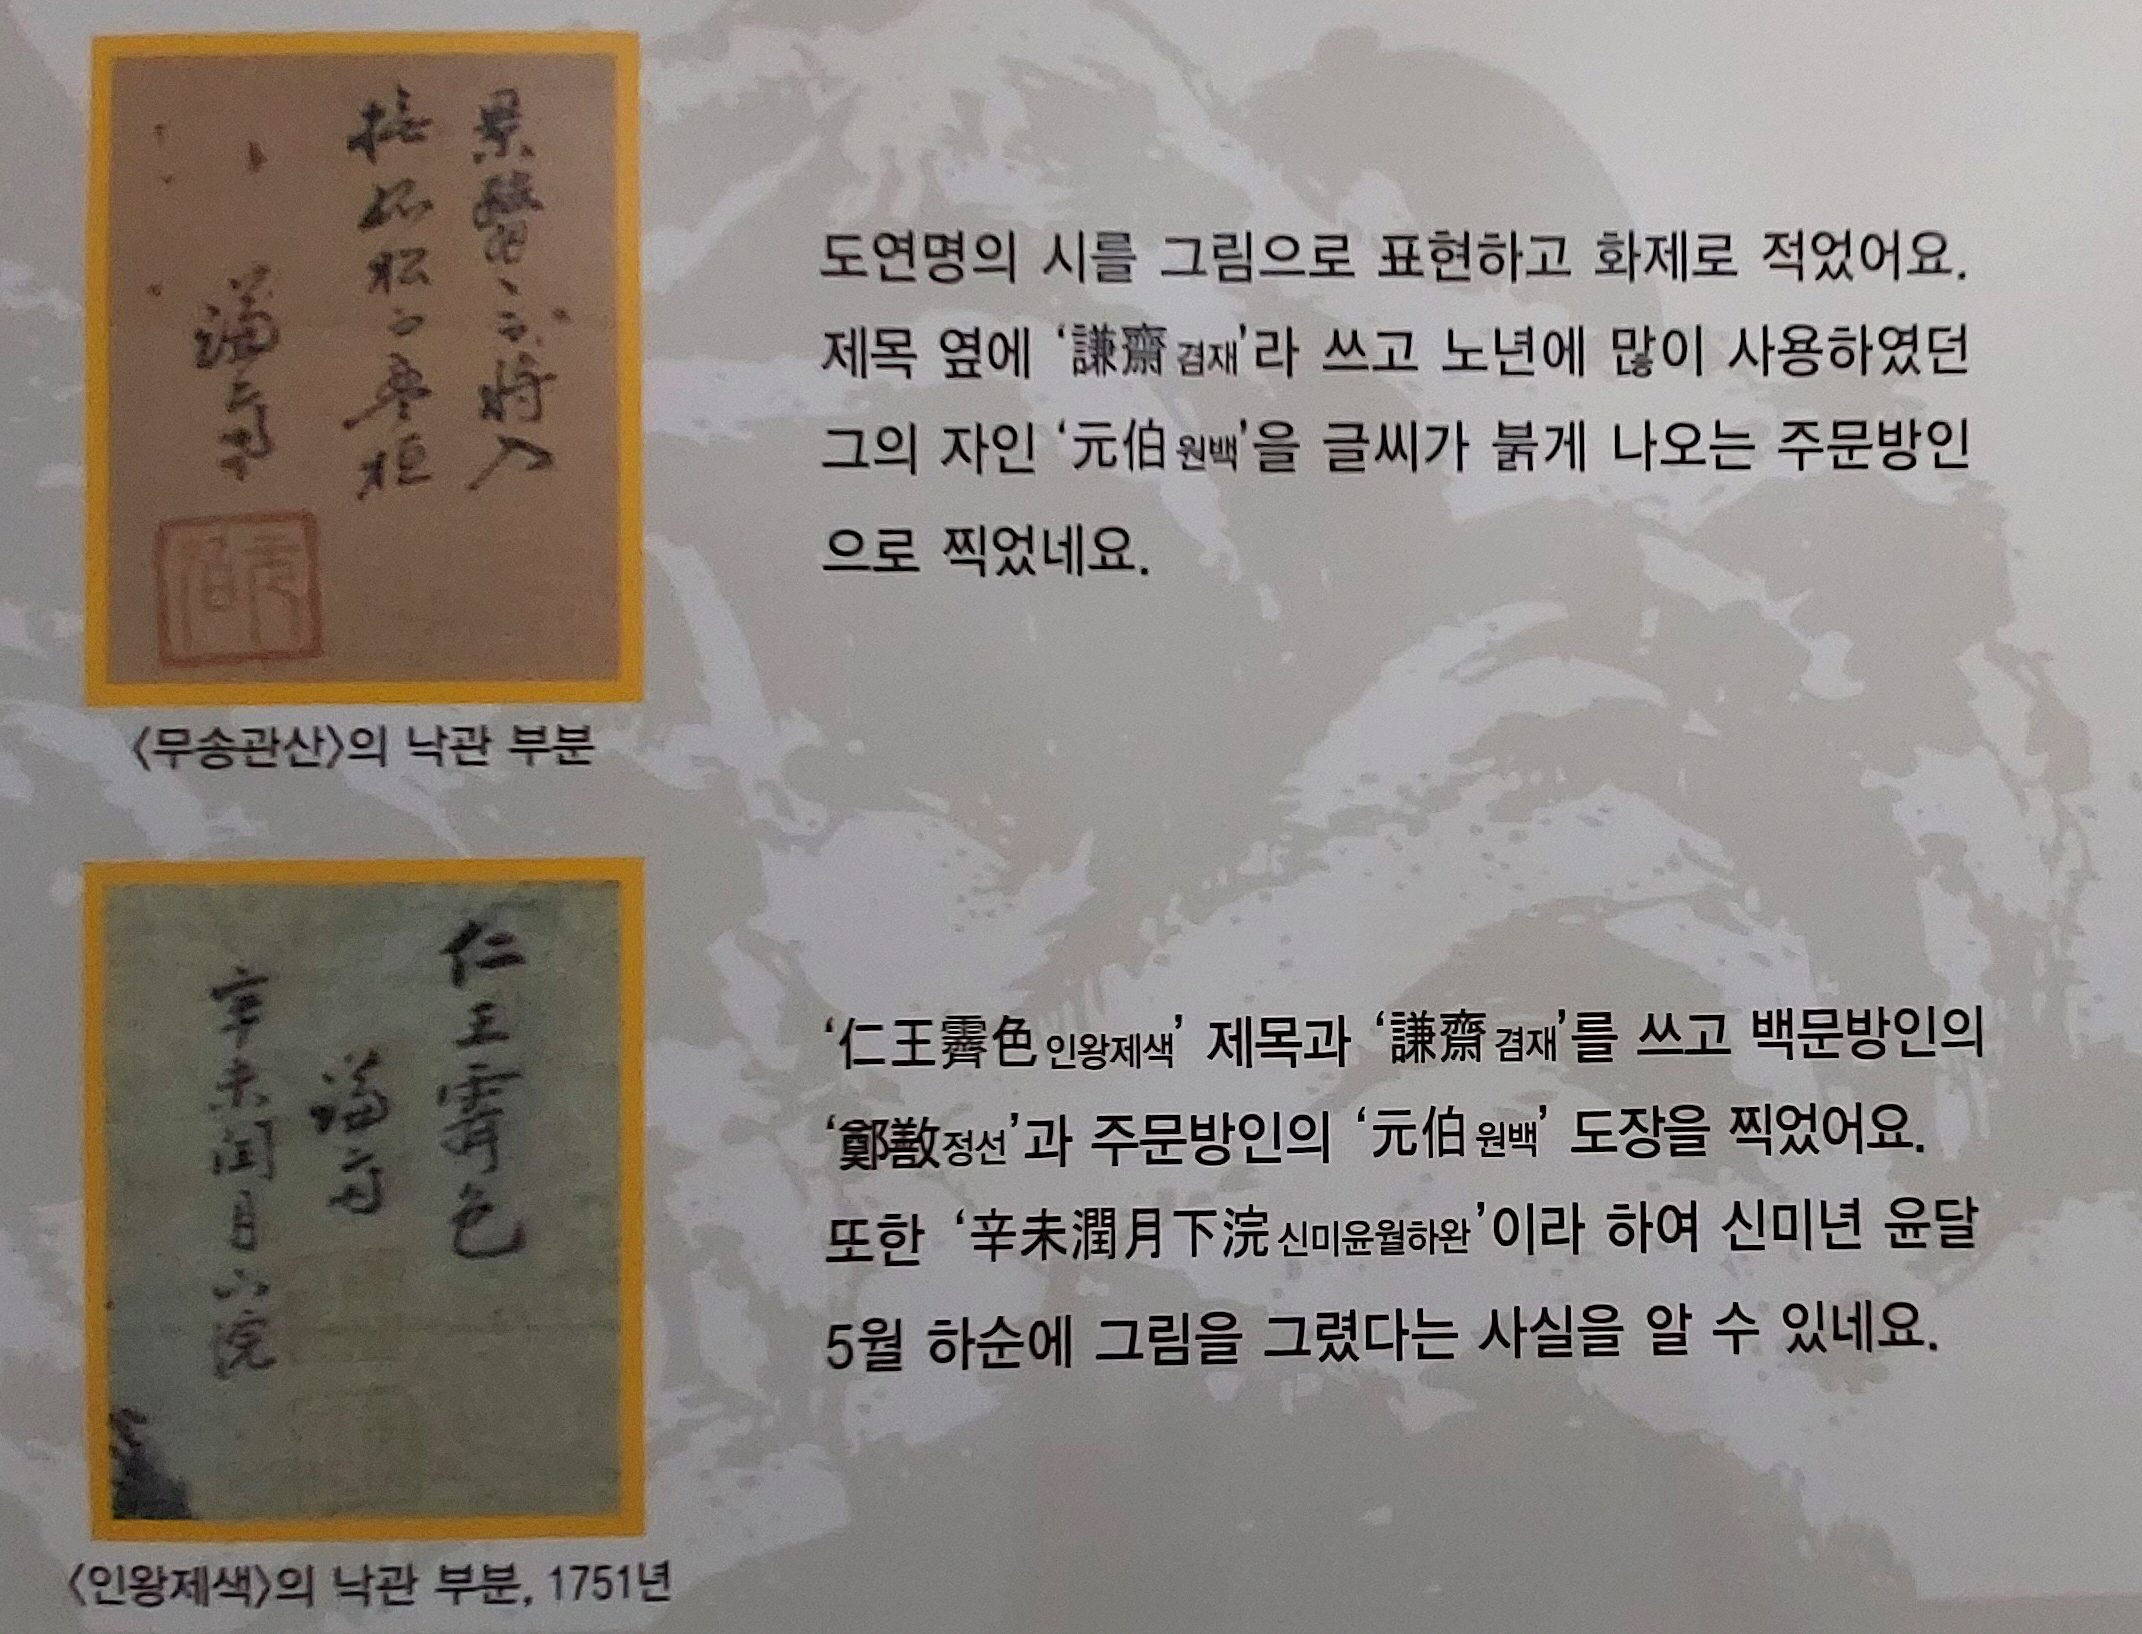 景翳々以將入
撫孤松而盤桓
謙齋
元伯
〈무송관산〉의 낙관 부분
도연명의 시를 그림으로 표현하고 화제로 적었어요.
제목 옆에 ‘謙齋겸재’라 쓰고 노년에 많이 사용하였던
그의 자인 ‘元伯원백’을 글씨가 붉게 나오는 주문방인
으로 찍었네요.
仁王霽色
謙齋
辛未閏月下浣
〈인왕제색〉의 낙관 부분, 1751년
‘仁王霽色인왕제색’ 제목과 ‘謙齋겸재’를 쓰고 백문방인의
‘鄭敾정선’과 주문방인의 ‘元伯원백’ 도장을 찍었어요.
또한 ‘辛未潤月下浣신미윤월하완’이라 하여 신미년 윤달
5월 하순에 그림을 그렸다는 사실을 알 수 있네요.